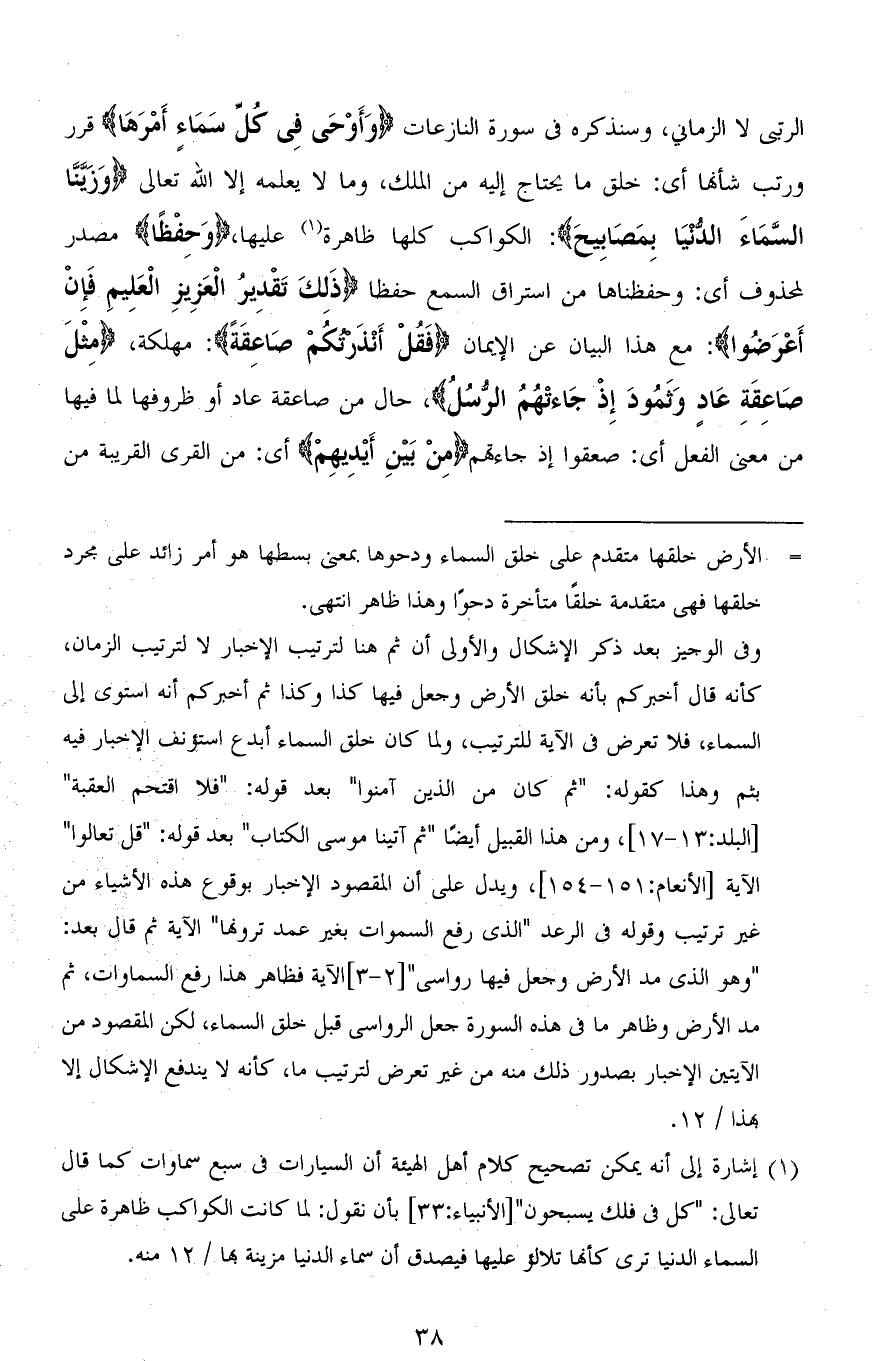 الرتبى لا الزماني، وسنذكره فى سورة النازعات ﴿وَأَوْحَى فِى كُلِّ سَمَاءٍ أَمْرَهَا﴾ قرر
ورتب شأنها أى: خلق ما يحتاج إليه من الملك، وما لا يعلمه إلا الله تعالى ﴿وَزَيَّنَّا
السَّمَاءَ الدُّنْيَا بِمَصَابِيحَ﴾: الكواكب كلها ظاهرة(١) عليها،﴿وَحِفْظًا﴾ مصدر
لمحذوف أى: وحفظناها من استراق السمع حفظا ﴿ذَلِكَ تَقْدِيرُ الْعَزِيزِ الْعَلِيمِ فَإِنْ
أَعْرَضُوا﴾: مع هذا البيان عن الإيمان ﴿فَقُلْ أَنْذَرْتُكُمْ صَاعِقَةً﴾: مهلكة، ﴿مِثْلَ
صَاعِقَةِ عَادٍ وَثَمُودَ إِذْ جَاءتْهُمُ الرُّسُلُ﴾، حال من صاعقة عاد أو ظروفها لما فيها
من معنى الفعل أى: صعقوا إذ جاءتهم﴿مِنْ بَيْنِ أَيْدِيهِمْ﴾ أى: من القرى القريبة من
= الأرض خلقها متقدم على خلق السماء ودحوها بمعنى بسطها هو أمر زائد على مجرد
خلقها فهى متقدمة خلقًا متأخرة دحوًا وهذا ظاهر انتهى.
وفى الوجيز بعد ذكر الإشكال والأولى أن ثم هنا لترتيب الإخبار لا لترتيب الزمان،
كأنه قال أخبركم بأنه خلق الأرض وجعل فيها كذا وكذا ثم أخبركم أنه استوى إلى
السماء، فلا تعرض فى الآية للترتيب، ولما كان خلق السماء أبدع استؤنف الإخبار فيه
بثم وهذا كقوله: "ثم كان من الذين آمنوا" بعد قوله: "فلا اقتحم العقبة"
[البلد:١٣-١٧]، ومن هذا القبيل أيضًا "ثم آتينا موسى الكتاب" بعد قوله: "قل تعالوا"
الآية [الأنعام:١٥١-١٥٤]، ويدل على أن المقصود الإخبار بوقوع هذه الأشياء من
غير ترتيب وقوله فى الرعد "الذى رفع السموات بغير عمد ترونها" الآية ثم قال بعد:
"وهو الذى مد الأرض وجعل فيها رواسى"[٢-٣]الآية فظاهر هذا رفع السماوات، ثم
مد الأرض وظاهر ما فى هذه السورة جعل الرواسى قبل خلق السماء، لكن المقصود من
الآيتين الإخبار بصدور ذلك منه من غير تعرض لترتيب ما، كأنه لا يندفع الإشكال إلا
بهذا / ١٢.
(١) إشارة إلى أنه يمكن تصحيح كلام أهل الهيئة أن السيارات فى سبع سماوات كما قال
تعالى: "كل فى فلك يسبحون"[الأنبياء:٣٣] بأن نقول: لما كانت الكواكب ظاهرة على
السماء الدنيا ترى كأنها تلالؤ عليها فيصدق أن سماء الدنيا مزينة بها / ١٢ منه.
٣٨